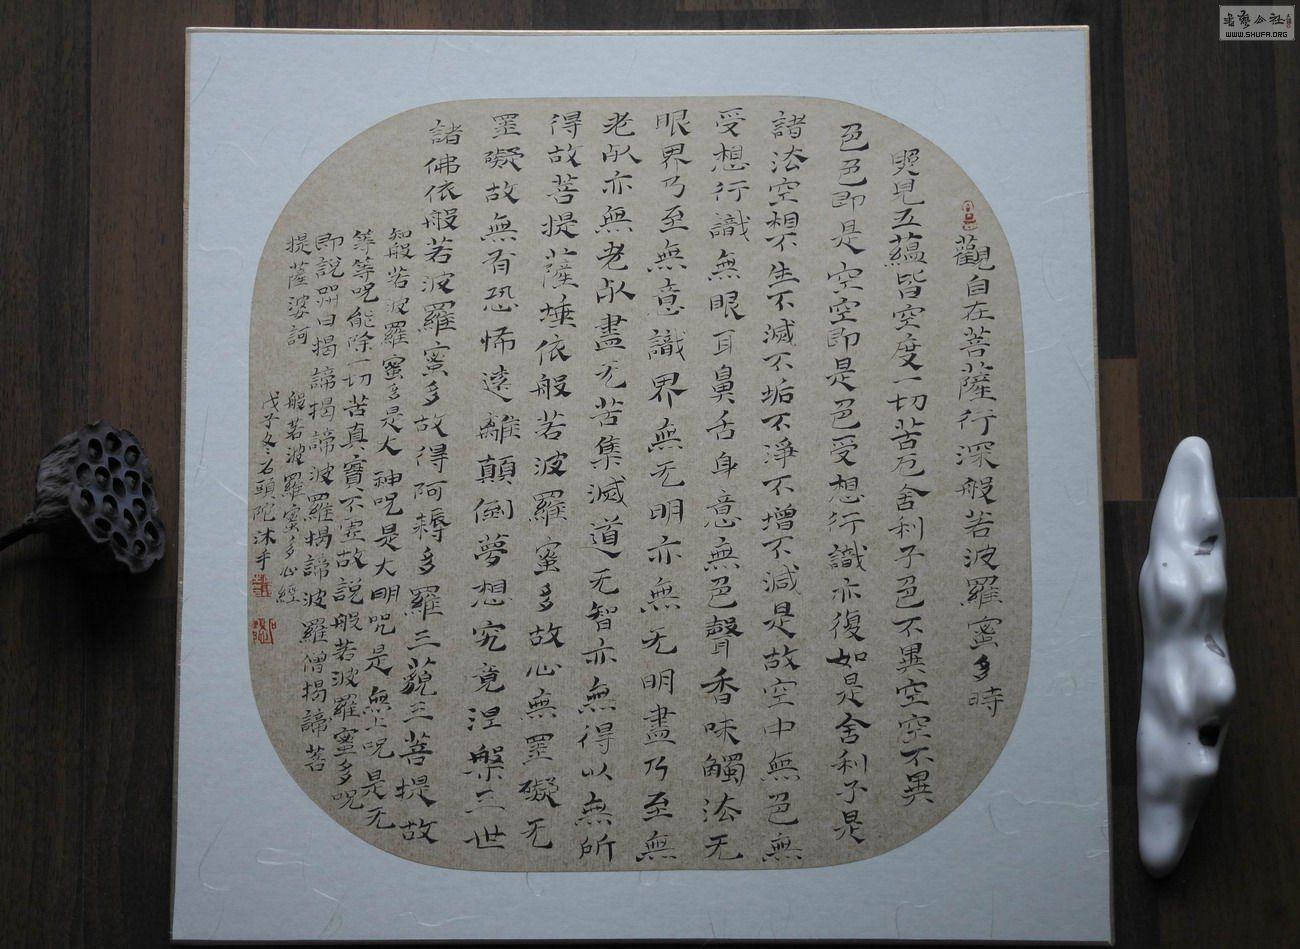 觀自在菩薩行深般若波羅蜜多時
照見五蘊皆空度一切苦厄舍利子色不異空空不異
色色即是空空即是色受想行識亦復如是舍利子是
諸法空相不生不滅不垢不淨不增不減是故空中無色無
受想行識無眼耳鼻舌身意無色聲香味觸法无
眼界乃至無意識界無无明亦無无明盡乃至無
老死亦無老死盡无苦集滅道无智亦無得以無所
得故菩提薩埵依般若波羅蜜多故心無罣礙无
罣礙故無有恐怖遠離顛倒夢想究竟涅槃三世
諸佛依般若波羅蜜多故得阿耨多羅三藐三菩提故
知般若波羅蜜多是大神呪是大明呪是無上呪是无
等等呪能除一切苦真實不虛故說般若波羅蜜多呪
即說咒曰揭諦揭諦波羅揭諦波羅僧揭諦菩
提薩婆訶
般若波羅蜜多心經
戊子冬石頭陀沐手
書藝公社
WWW.SHUFA.ORG